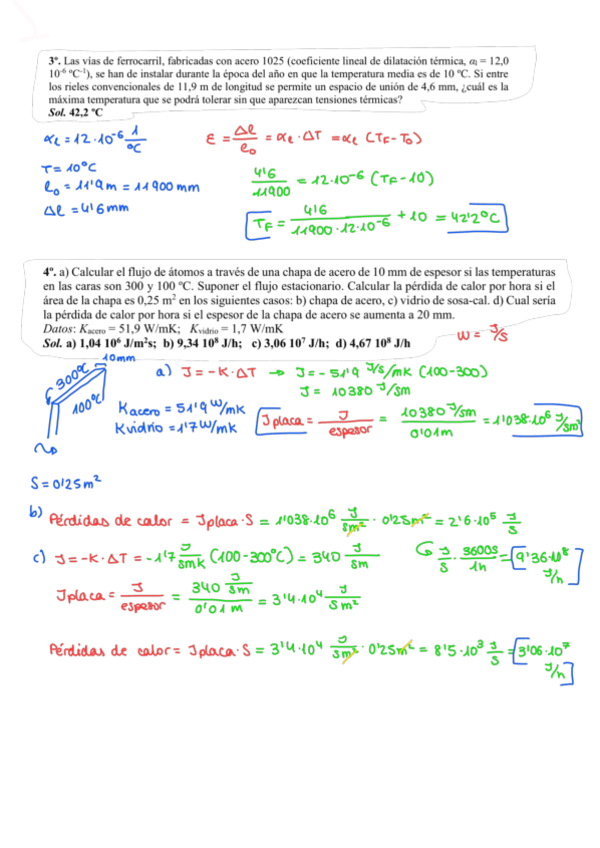 3º. Las vías de ferrocarril, fabricadas con acero 1025 (coeficiente lineal de dilatación térmica, αₗ = 12,0
10⁻⁶ ºC⁻¹), se han de instalar durante la época del año en que la temperatura media es de 10 ºC. Si entre
los rieles convencionales de 11,9 m de longitud se permite un espacio de unión de 4,6 mm, ¿cuál es la
máxima temperatura que se podrá tolerar sin que aparezcan tensiones térmicas?
Sol. 42,2 ºC
αL = 12·10⁻⁶ 1/ºC
T = 10ºC
l₀ = 11'9m = 11900 mm
Δl = 4'6mm
ε = Δl/l₀ = αL · ΔT = αL (TF - T₀)
4'6/11900 = 12·10⁻⁶ (TF - 10)
TF = 4'6/11900·12·10⁻⁶ + 10 = 42'2ºC
4º. a) Calcular el flujo de átomos a través de una chapa de acero de 10 mm de espesor si las temperaturas
en las caras son 300 y 100 ºC. Suponer el flujo estacionario. Calcular la pérdida de calor por hora si el
área de la chapa es 0,25 m² en los siguientes casos: b) chapa de acero, c) vidrio de sosa-cal. d) Cual sería
la pérdida de calor por hora si el espesor de la chapa de acero se aumenta a 20 mm.
Datos: Kacero = 51,9 W/mK; Kvidrio = 1,7 W/mK
Sol. a) 1,04 10⁶ J/m²s; b) 9,34 10⁸ J/h; c) 3,06 10⁷ J/h; d) 4,67 10⁸ J/h
W = J/s
10mm
300ºC
100ºC
a) J = -K·ΔT → J = -51'9 J/s/mK (100-300)
J = 10380 J/sm
Kacero = 51'9 W/mK
Kvidrio = 1'7 W/mK
Jplaca = J/espesor = 10380 J/sm/0'01m = 1'038·10⁶ J/sm²
S = 0'25m²
b) Pérdidas de calor = Jplaca·S = 1'038·10⁶ J/sm² · 0'25m² = 2'6·10⁵ J/s
J/s · 3600s/1h = 9'36·10⁸ J/h
c) J = -K·ΔT = -1'7 J/smK (100-300ºC) = 340 J/sm
Jplaca = J/espesor = 340 J/sm/0'01m = 3'4·10⁴ J/sm²
Pérdidas de calor = Jplaca·S = 3'4·10⁴ J/sm² · 0'25m² = 8'5·10³ J/s = 3'06·10⁷ J/h